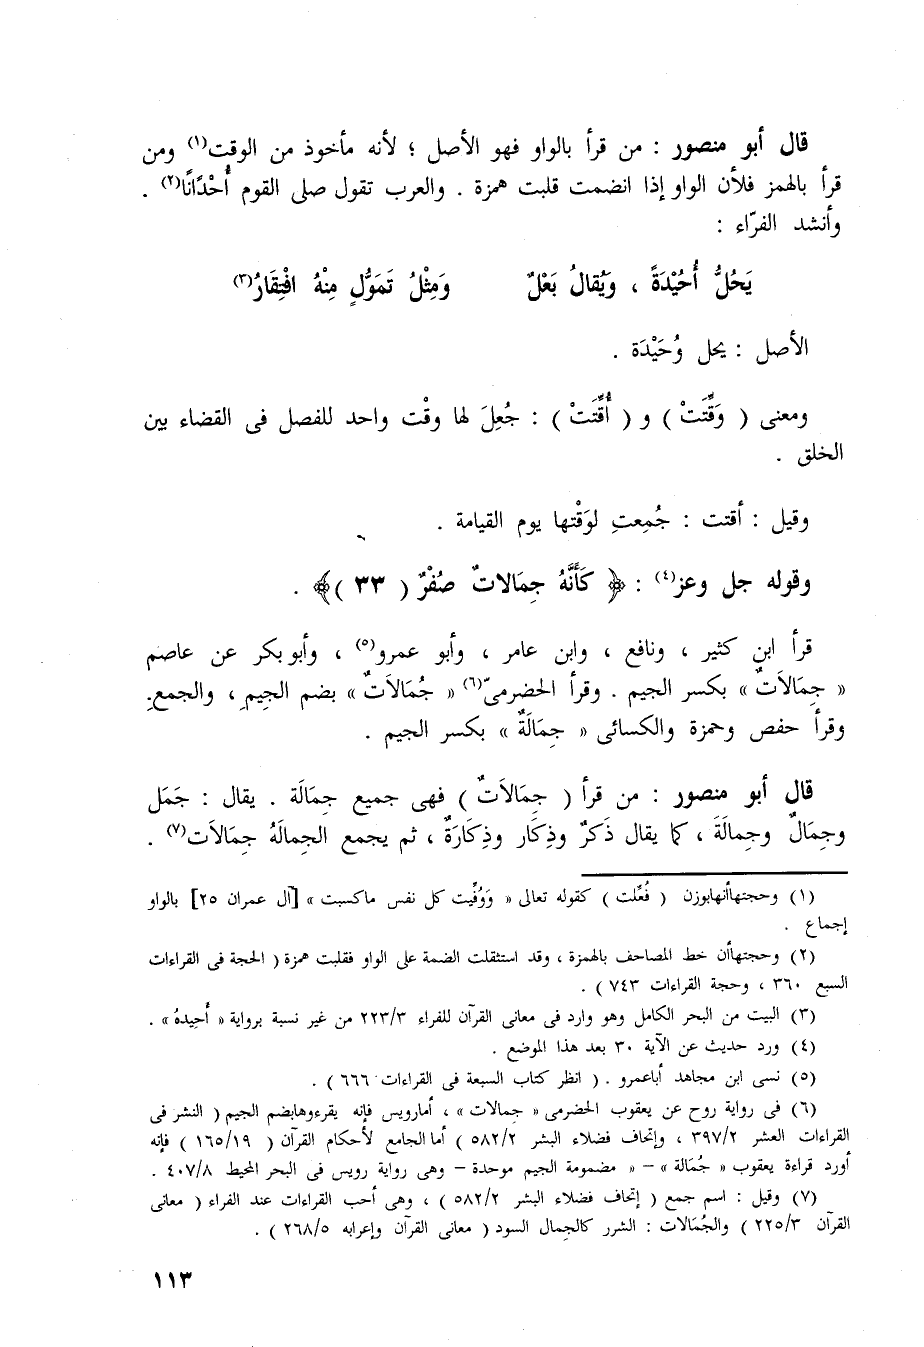 قال أبو منصور : من قرأ بالواو فهو الأصل ؛ لأنه مأخوذ من الوقت(١) ومن
قرأ بالهمز فلأن الواو إذا انضمت قلبت همزة . والعرب تقول صلى القوم أُحْدَانًا(٢) .
وأنشد الفرّاء :
يَحُلُّ أُحُيْدَةً ، وَيُقالُ بَعْلٌ وَمِثْلُ تَمَوُّلٍ مِنْهُ افْتِقَارُ(٣)
الأصل : يحل وُحَيْدَة .
ومعنى ( وَقِّتَتْ ) و ( أُقِّتَتْ ) : جُعِلَ لها وقْت واحد للفصل فى القضاء بين
الخلق .
وقيل : أقتت : جُمِعتِ لوَقْتها يوم القيامة .
وقوله جل وعز(٤) : ﴿ كَأَنَّهُ جِمَالاتٌ صُفْرٌ ( ٣٣ )﴾ .
قرأ ابن كثير ، ونافع ، وابن عامر ، وأبو عمرو(٥) ، وأبو بكر عن عاصم
« جِمَالَاتٌ » بكسر الجيم . وقرأ الحضرمىّ(٦) « جُمَالَاتٌ » بضم الجيم ، والجمع.
وقرأ حفص وحمزة والكسائى « جِمَالَةٌ » بكسر الجيم .
قال أبو منصور : من قرأ ( جِمَالَاتٌ ) فهى جميع جِمَالَة . يقال : جَمَل
وجِمَالٌ وجِمالَةَ ، كما يقال ذَكرٌ وذِكَار وذِكَارَةٌ ، ثم يجمع الجِمالَهُ جِمَالَات(٧) .
(١) وحجتهاأنهابوزن ( فُعِّلت ) كقوله تعالى « وَوُفِّيت كل نفس ماكسبت » [آل عمران ٢٥] بالواو
إجماع .
(٢) وحجتهاأن خط المصاحف بالهمزة ، وقد استثقلت الضمة على الواو فقلبت همزة ( الحجة فى القراءات
السبع ٣٦٠ ، وحجة القراءات ٧٤٣ ) .
(٣) البيت من البحر الكامل وهو وارد فى معانى القرآن للفراء ٢٢٣/٣ من غير نسبة برواية « أحيدهُ » .
(٤) ورد حديث عن الآية ٣٠ بعد هذا الموضع .
(٥) نسى ابن مجاهد أباعمرو . ( انظر كتاب السبعة فى القراءات ٦٦٦ ) .
(٦) فى رواية روح عن يعقوب الحضرمى « جِمالات » ، أمارويس فإنه يقرءوهابضم الجيم ( النشر فى
القراءات العشر ٣٩٧/٢ ، وإتحاف فضلاء البشر ٥٨٢/٢ ) أما الجامع لأحكام القرآن ( ١٦٥/١٩ ) فإنه
أورد قراءة يعقوب « جُمَالة » – « مضمومة الجيم موحدة – وهى رواية رويس فى البحر المحيط ٤٠٧/٨ .
(٧) وقيل : اسم جمع ( إتحاف فضلاء البشر ٥٨٢/٢ ) ، وهى أحب القراءات عند الفراء ( معانى
القرآن ٢٢٥/٣ ) والجُمَالات : الشرر كالجمال السود ( معانى القرآن وإعرابه ٢٦٨/٥ ) .
١١٣